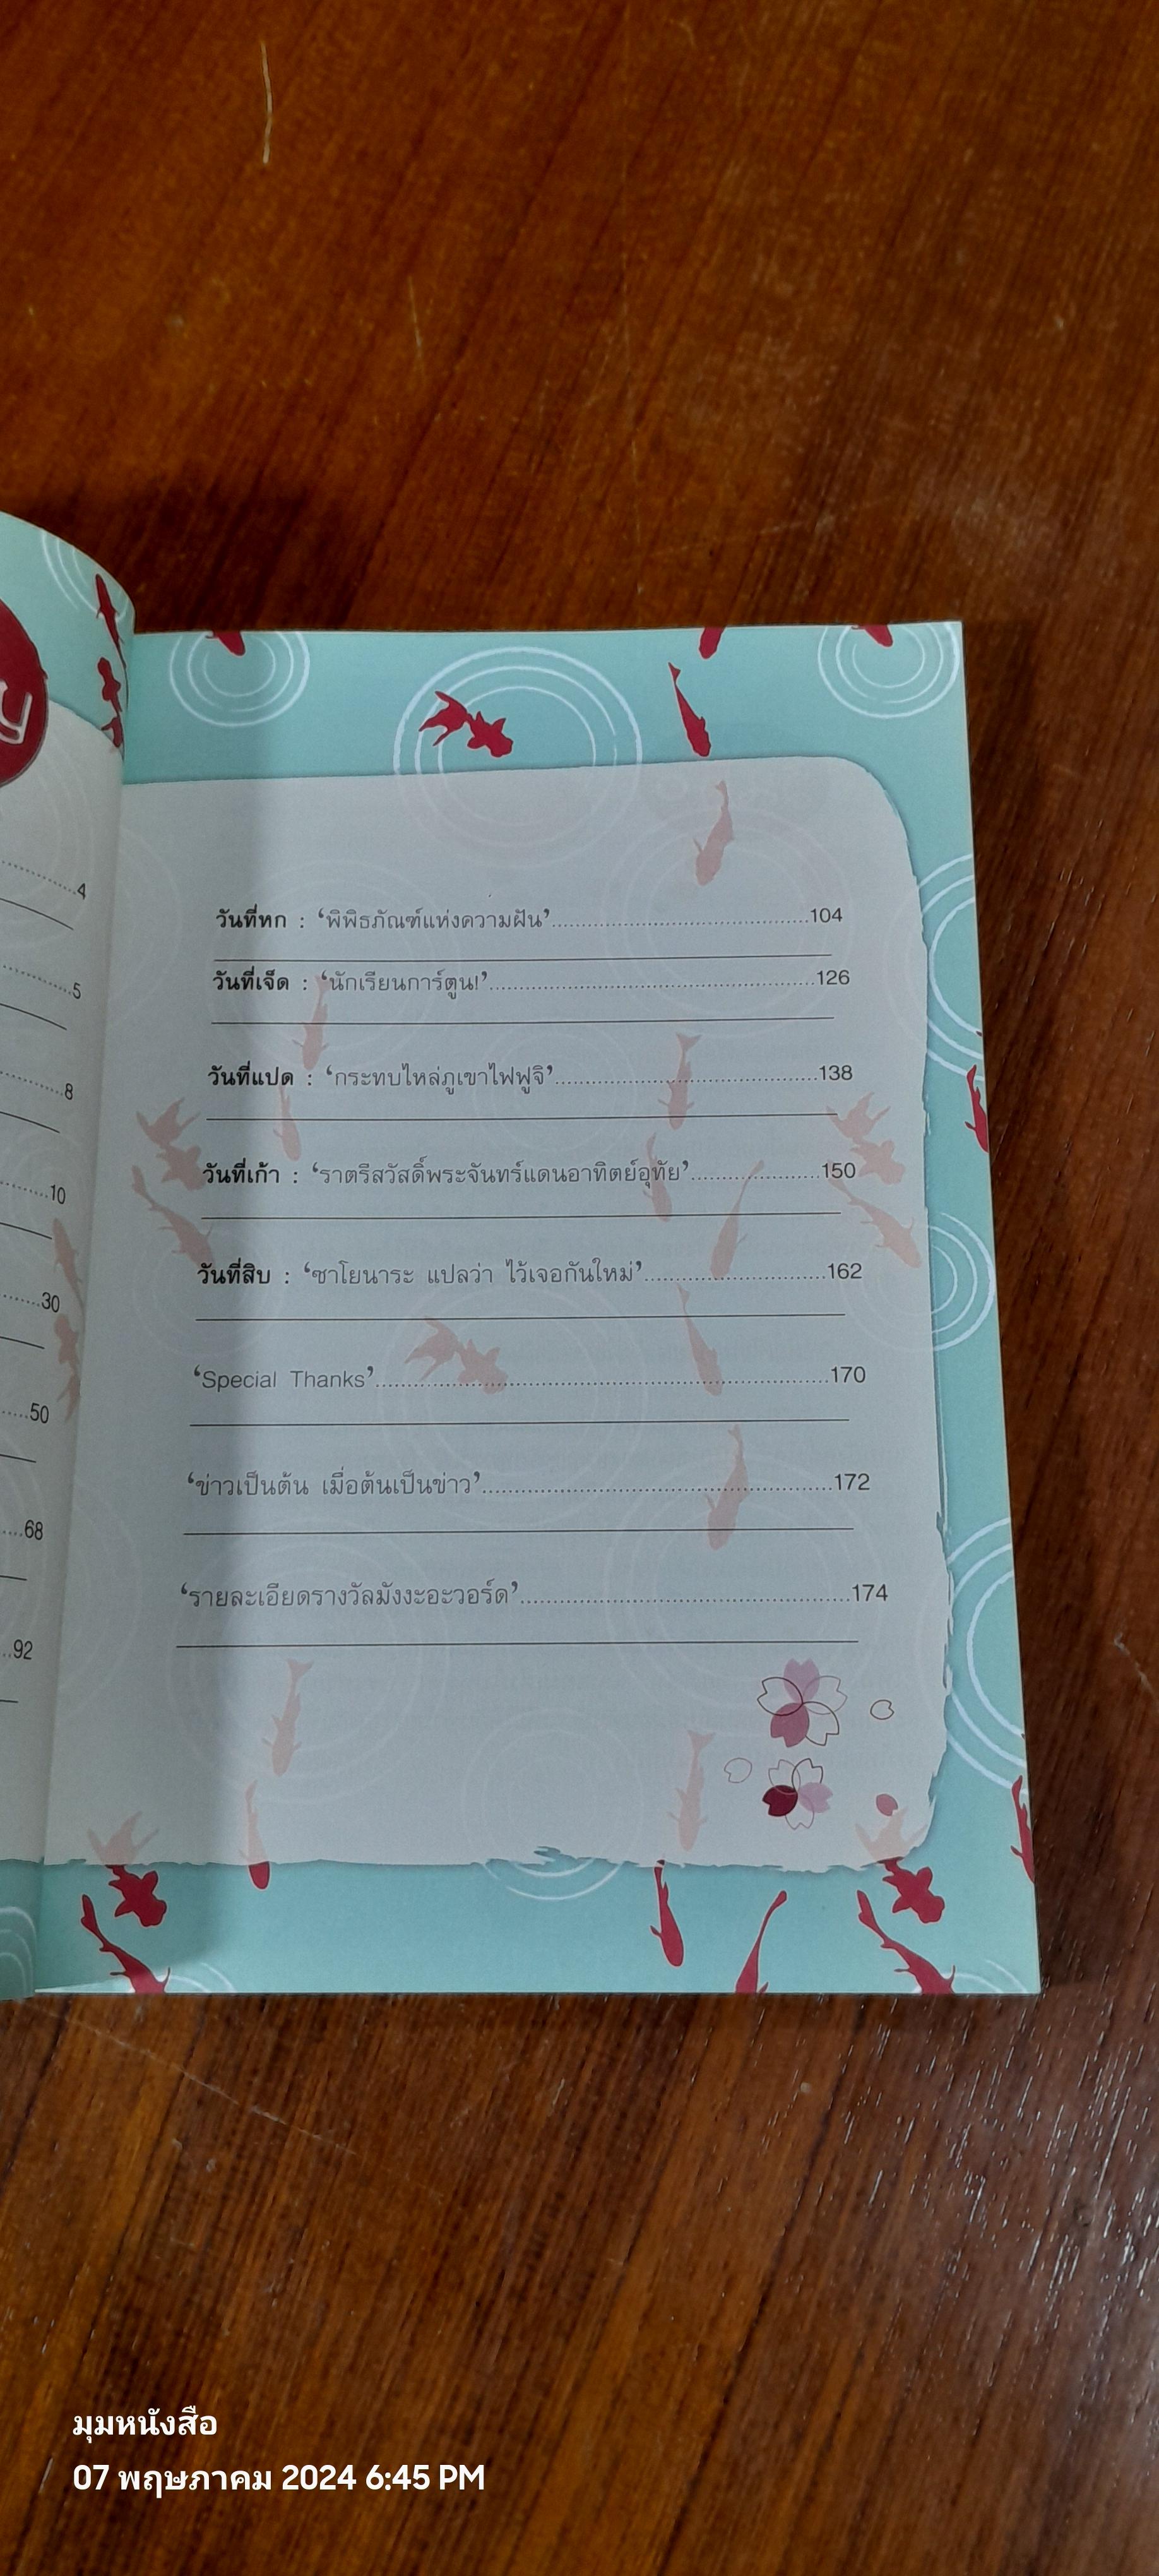 y
4
5
8
10
30
50
68
92
วันที่หก : ‘พิพิธภัณฑ์แห่งความฝัน’..........104
วันที่เจ็ด : ‘นักเรียนการ์ตูน!’..........126
วันที่แปด : ‘กระทบไหล่ภูเขาไฟฟูจิ’..........138
วันที่เก้า : ‘ราตรีสวัสดิ์พระจันทร์แดนอาทิตย์อุทัย’..........150
วันที่สิบ : ‘ซาโยนาระ แปลว่า ไว้เจอกันใหม่’..........162
‘Special Thanks’..........170
‘ข่าวเป็นต้น เมื่อต้นเป็นข่าว’..........172
‘รายละเอียดรางวัลมังงะอะวอร์ด’..........174
มุมหนังสือ
07 พฤษภาคม 2024 6:45 PM